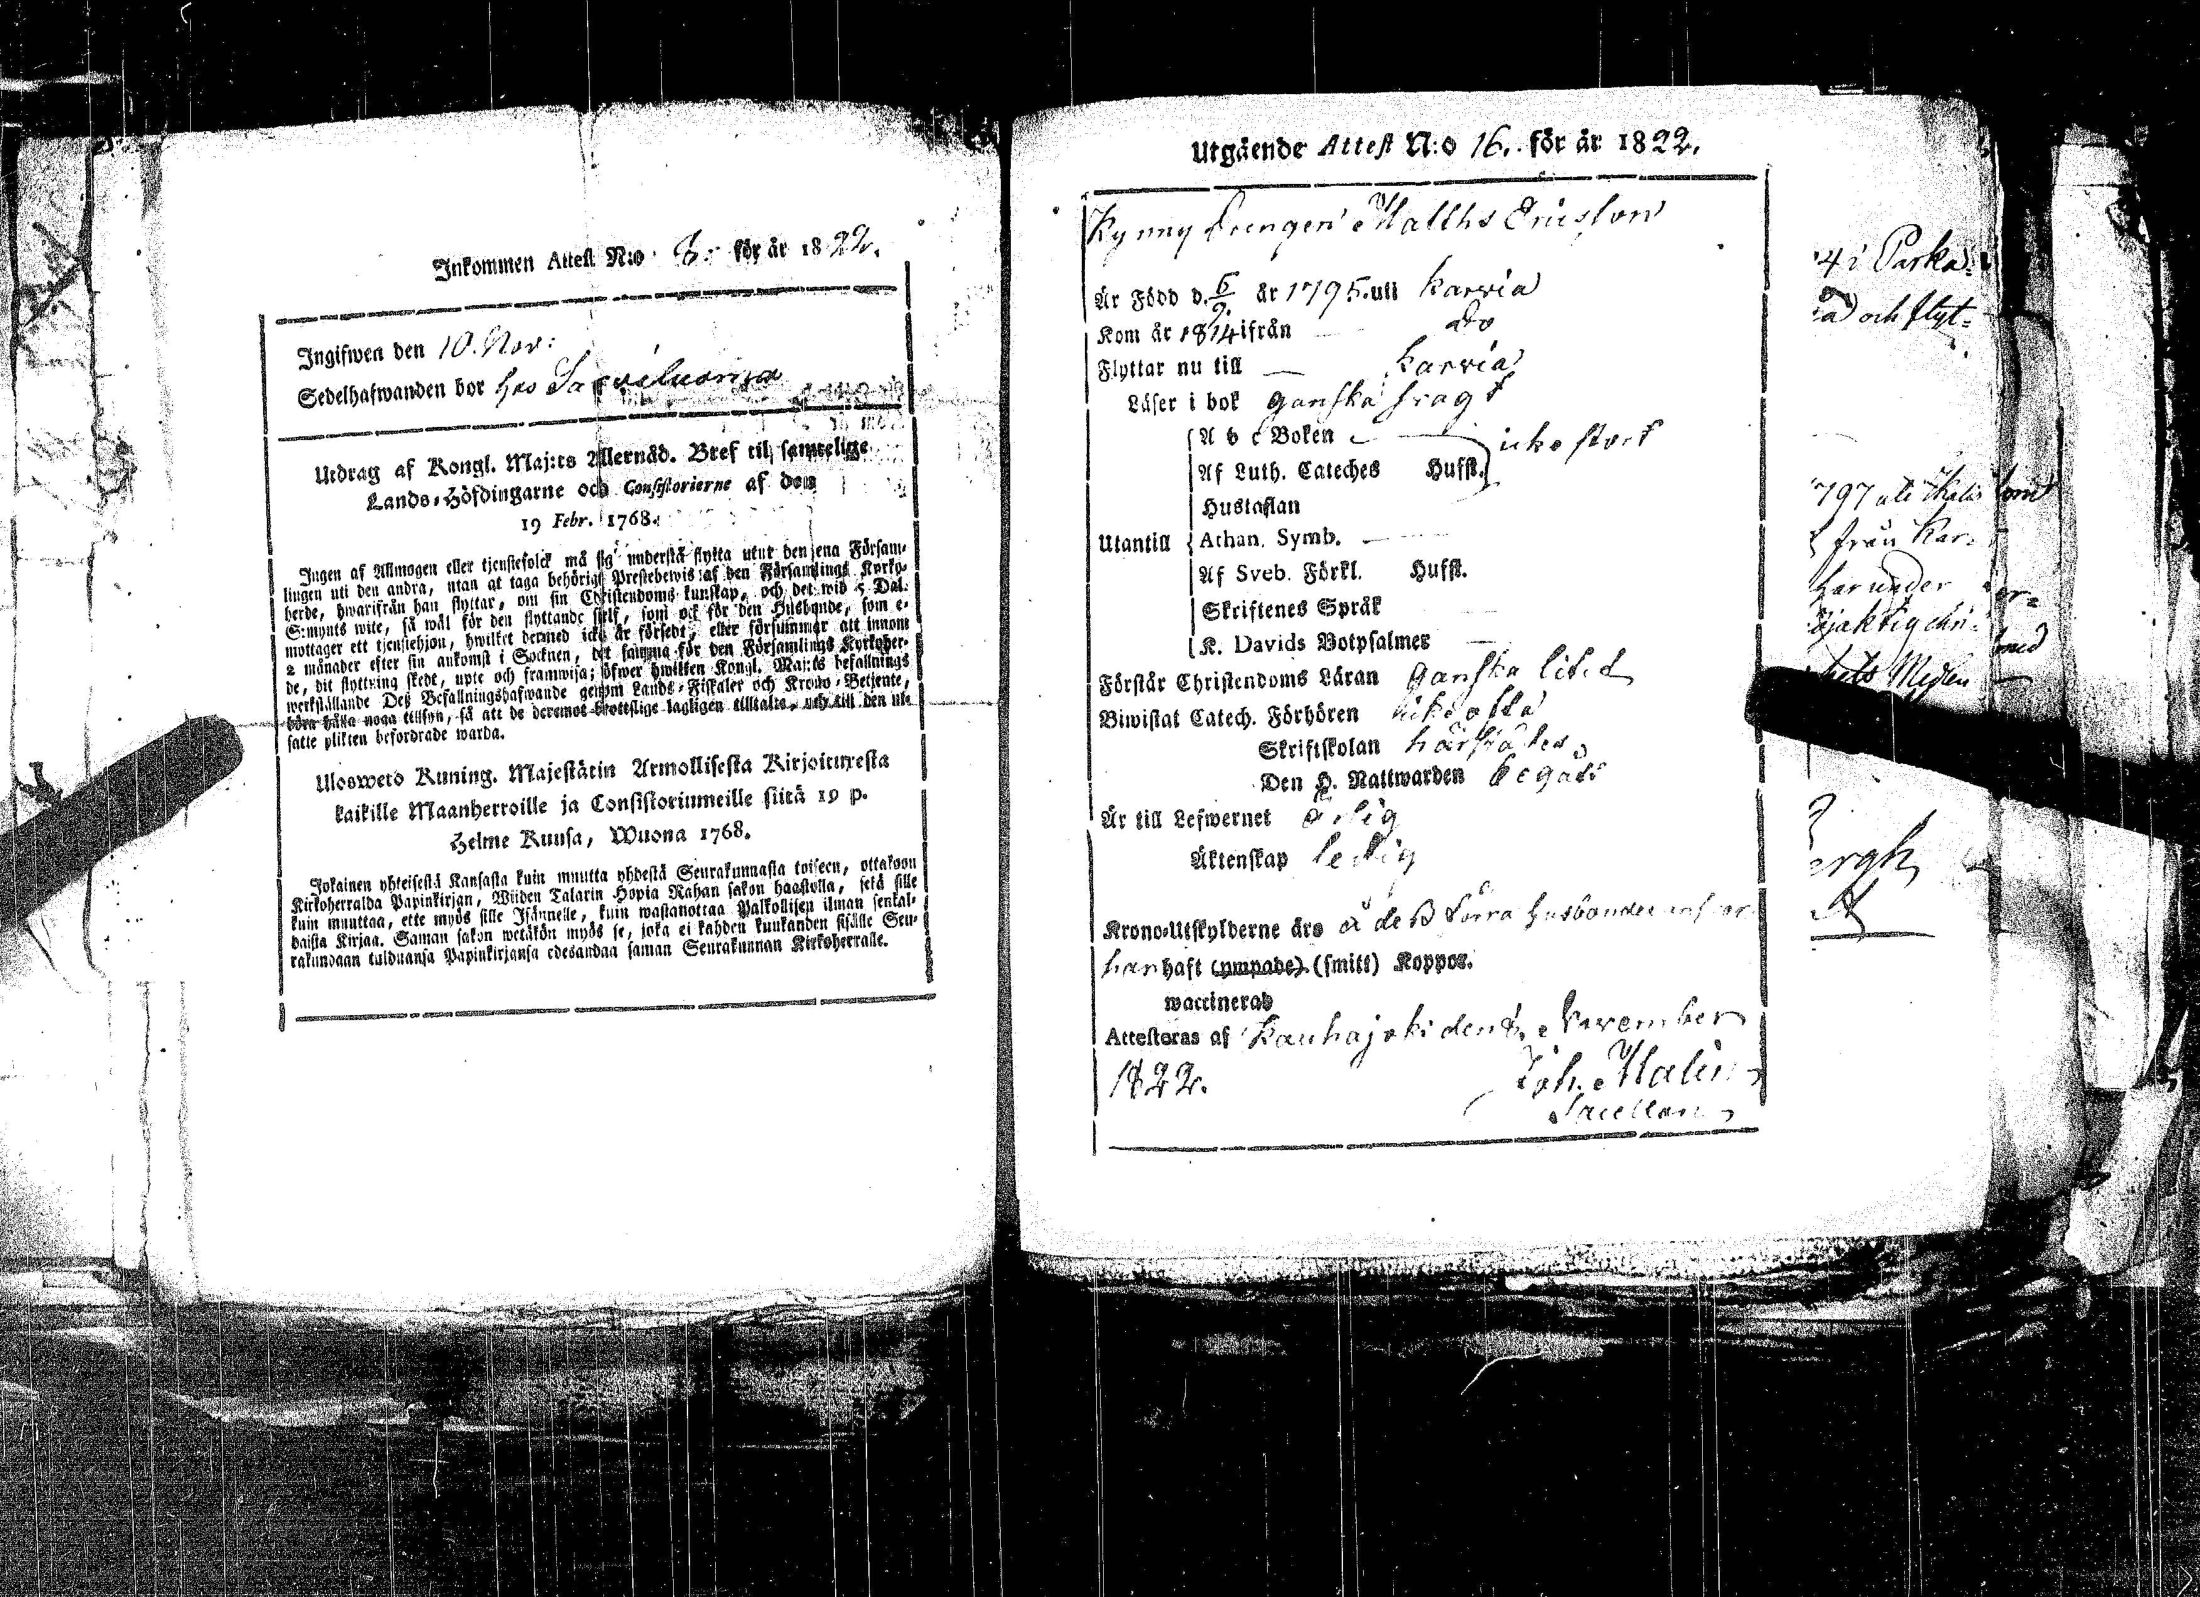 Inkommen Attest N:o 8. för år 1822.
Ingifwen den 10. Nov:
Sedelhafwanden bor hos
Utdrag af Kongl. Maj:ts Allernåd. Bref til samtelige
Lands-Höfdingarne och Consistorierne af den
19 Febr. 1768.
Ingen af Allmogen eller tjenstefolck må sig understå flytta utur den ena Försam-
lingen uti den andra, utan at taga behörigt Prestebewis af den Församlings Kyrko-
herde, hwarifrån han flyttar, om sin Christendoms kunskap, och det wid 5 Dal.
S:mynts wite, så wäl för den flyttande sielf, som ock för den Husbonde, som e-
mottager ett tjenstehjon, hwilket dermed icke är försedt, eller försummar att innom
2 månader efter sin ankomst i Socknen, det samma för den Församlings Kyrkoher-
de, dit flyttning skedt, upte och framwisa; öfwer hwilken Kongl. Maj:ts befallnings
werkställande Deß Befallningshafwande genom Lands-Fiskaler och Krono-Betjente,
böra hålla noga tillsyn, så att de deremot brottslige lagligen tilltalas, och till den ut-
satte plikten befordrade warda.
Ulosweto Kuning. Majestätin Armollisesta Kirjoituxesta
kaikille Maanherroille ja Consistoriumeille siitä 19 p.
Helme Kuusa, Wuona 1768.
Jokainen yhteisestä Kansasta kuin muutta yhdestä Seurakunnasta toiseen, ottakoon
Kirkoherralda Papinkirjan, Wiiden Talarin Hopia Rahan sakon haastolla, setä sille
kuin muuttaa, ette myös sille Isännelle, kuin wastanottaa Palkollisen ilman senkal-
daista Kirjaa. Saman sakon wetäkön myös se, joka ei kahden kuukauden sisälle Seu-
rakundaan tulduansa Papinkirjansa edesandaa saman Seurakunnan Kirkoherralle.
Utgående Attest N:o 16. för år 1822.
Kynny Drengen Matths Ericsson
Är Född d. 6/9. år 1795. uti Karvia
Kom år 1814 ifrån — do
Flyttar nu till — Karvia
Läser i bok ganska svagt
A b c Boken — icke stort
Af Luth. Cateches Hufst.
Hustaflan
Utantill Athan. Symb. —
Af Sveb. Förkl. Hufst.
Skriftenes Språk —
K. Davids Botpsalmer —
Förstår Christendoms Läran ganska litet
Biwistat Catech. Förhören icke ofta
Skriftskolan härstädes
Den H. Nattwarden begått
Är till Lefwernet ärlig
Äktenskap ledig
Krono-Utskylderne äro å deß förra husbondes
har haft (ympade) (smitt) Koppor.
waccinerad
Attesteras af Kauhajoki den November
1822. Joh. Malin
Sacellan
4 i Parka-
och flyt-
1797 uti
från Kar-
har under
ergh